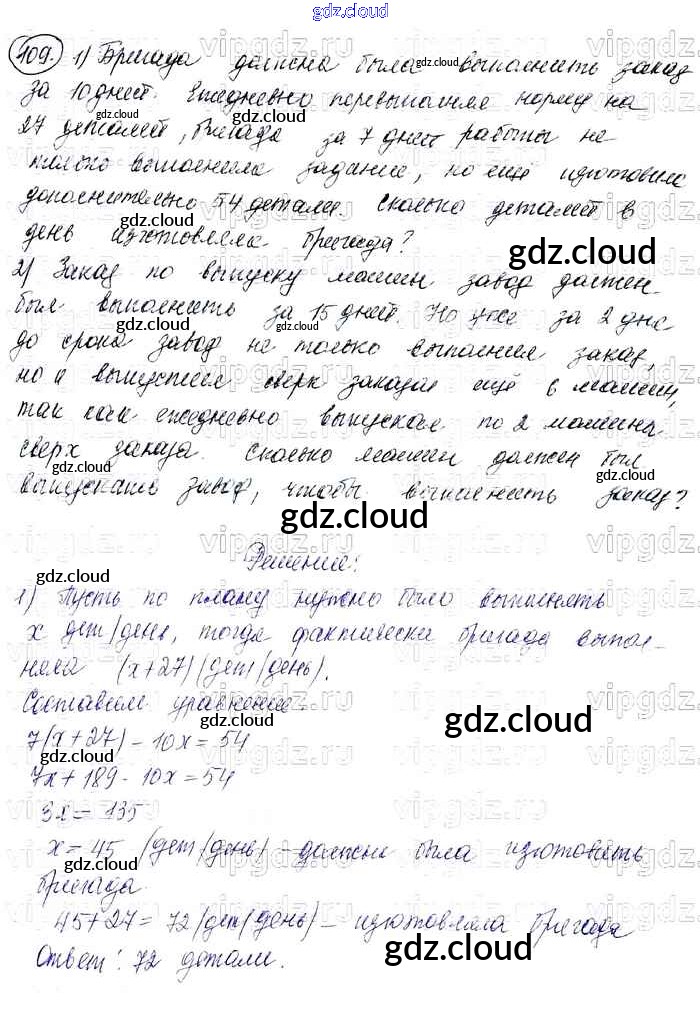 gdz.cloud
109. 1) Бригада должна была выполнить заказ
за 10 дней. Ежедневно перевыполняя норму на
27 деталей, бригада за 7 дней работы не
только выполнила задание, но ещё изготовила
дополнительно 54 детали. Сколько деталей в
день изготовляла бригада?
2) Заказ по выпуску машин завод должен
был выполнить за 15 дней. Но уже за 2 дня
до срока завод не только выполнил заказ,
но и выпустил сверх заказа ещё 6 машин,
так как ежедневно выпускал по 2 машины
сверх заказа. Сколько машин должен был
выпускать завод, чтобы выполнить заказ?
Решение:
1) Пусть по плану нужно было выполнять
x дет/день, тогда фактически бригада выпол-
няла (x+27) (дет/день).
Составим уравнение:
7(x+27) - 10x = 54
7x + 189 - 10x = 54
3x = 135
x = 45 (дет/день) - должна была изготовить
бригада
45 + 27 = 72 (дет/день) - изготовляла бригада
Ответ: 72 детали.